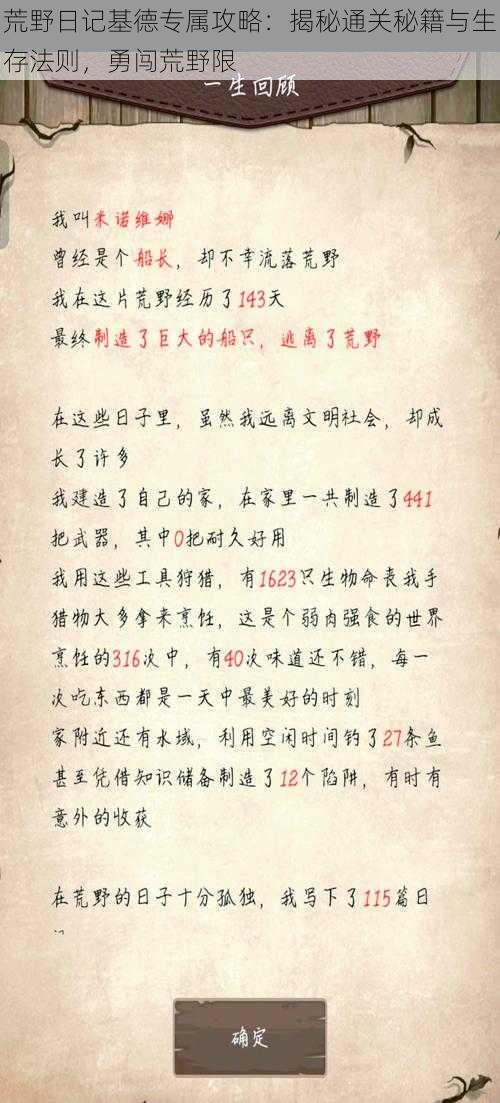 荒野日记基德专属攻略：揭秘通关秘籍与生
存法则，勇闯荒野限
一生回顾
我叫米诺维娜
曾经是个船长，却不幸流落荒野
我在这片荒野经历了143天
最终制造了巨大的船只，逃离了荒野
在这些日子里，虽然我远离文明社会，却成
长了许多
我建造了自己的家，在家里一共制造了441
把武器，其中0把耐久好用
我用这些工具狩猎，有1623只生物命丧我手
猎物大多拿来烹饪，这是个弱肉强食的世界
烹饪的316次中，有40次味道还不错，每一
次吃东西都是一天中最美好的时刻
家附近还有水域，利用空闲时间钓了27条鱼
甚至凭借知识储备制造了12个陷阱，有时有
意外的收获
在荒野的日子十分孤独，我写下了115篇日
确定